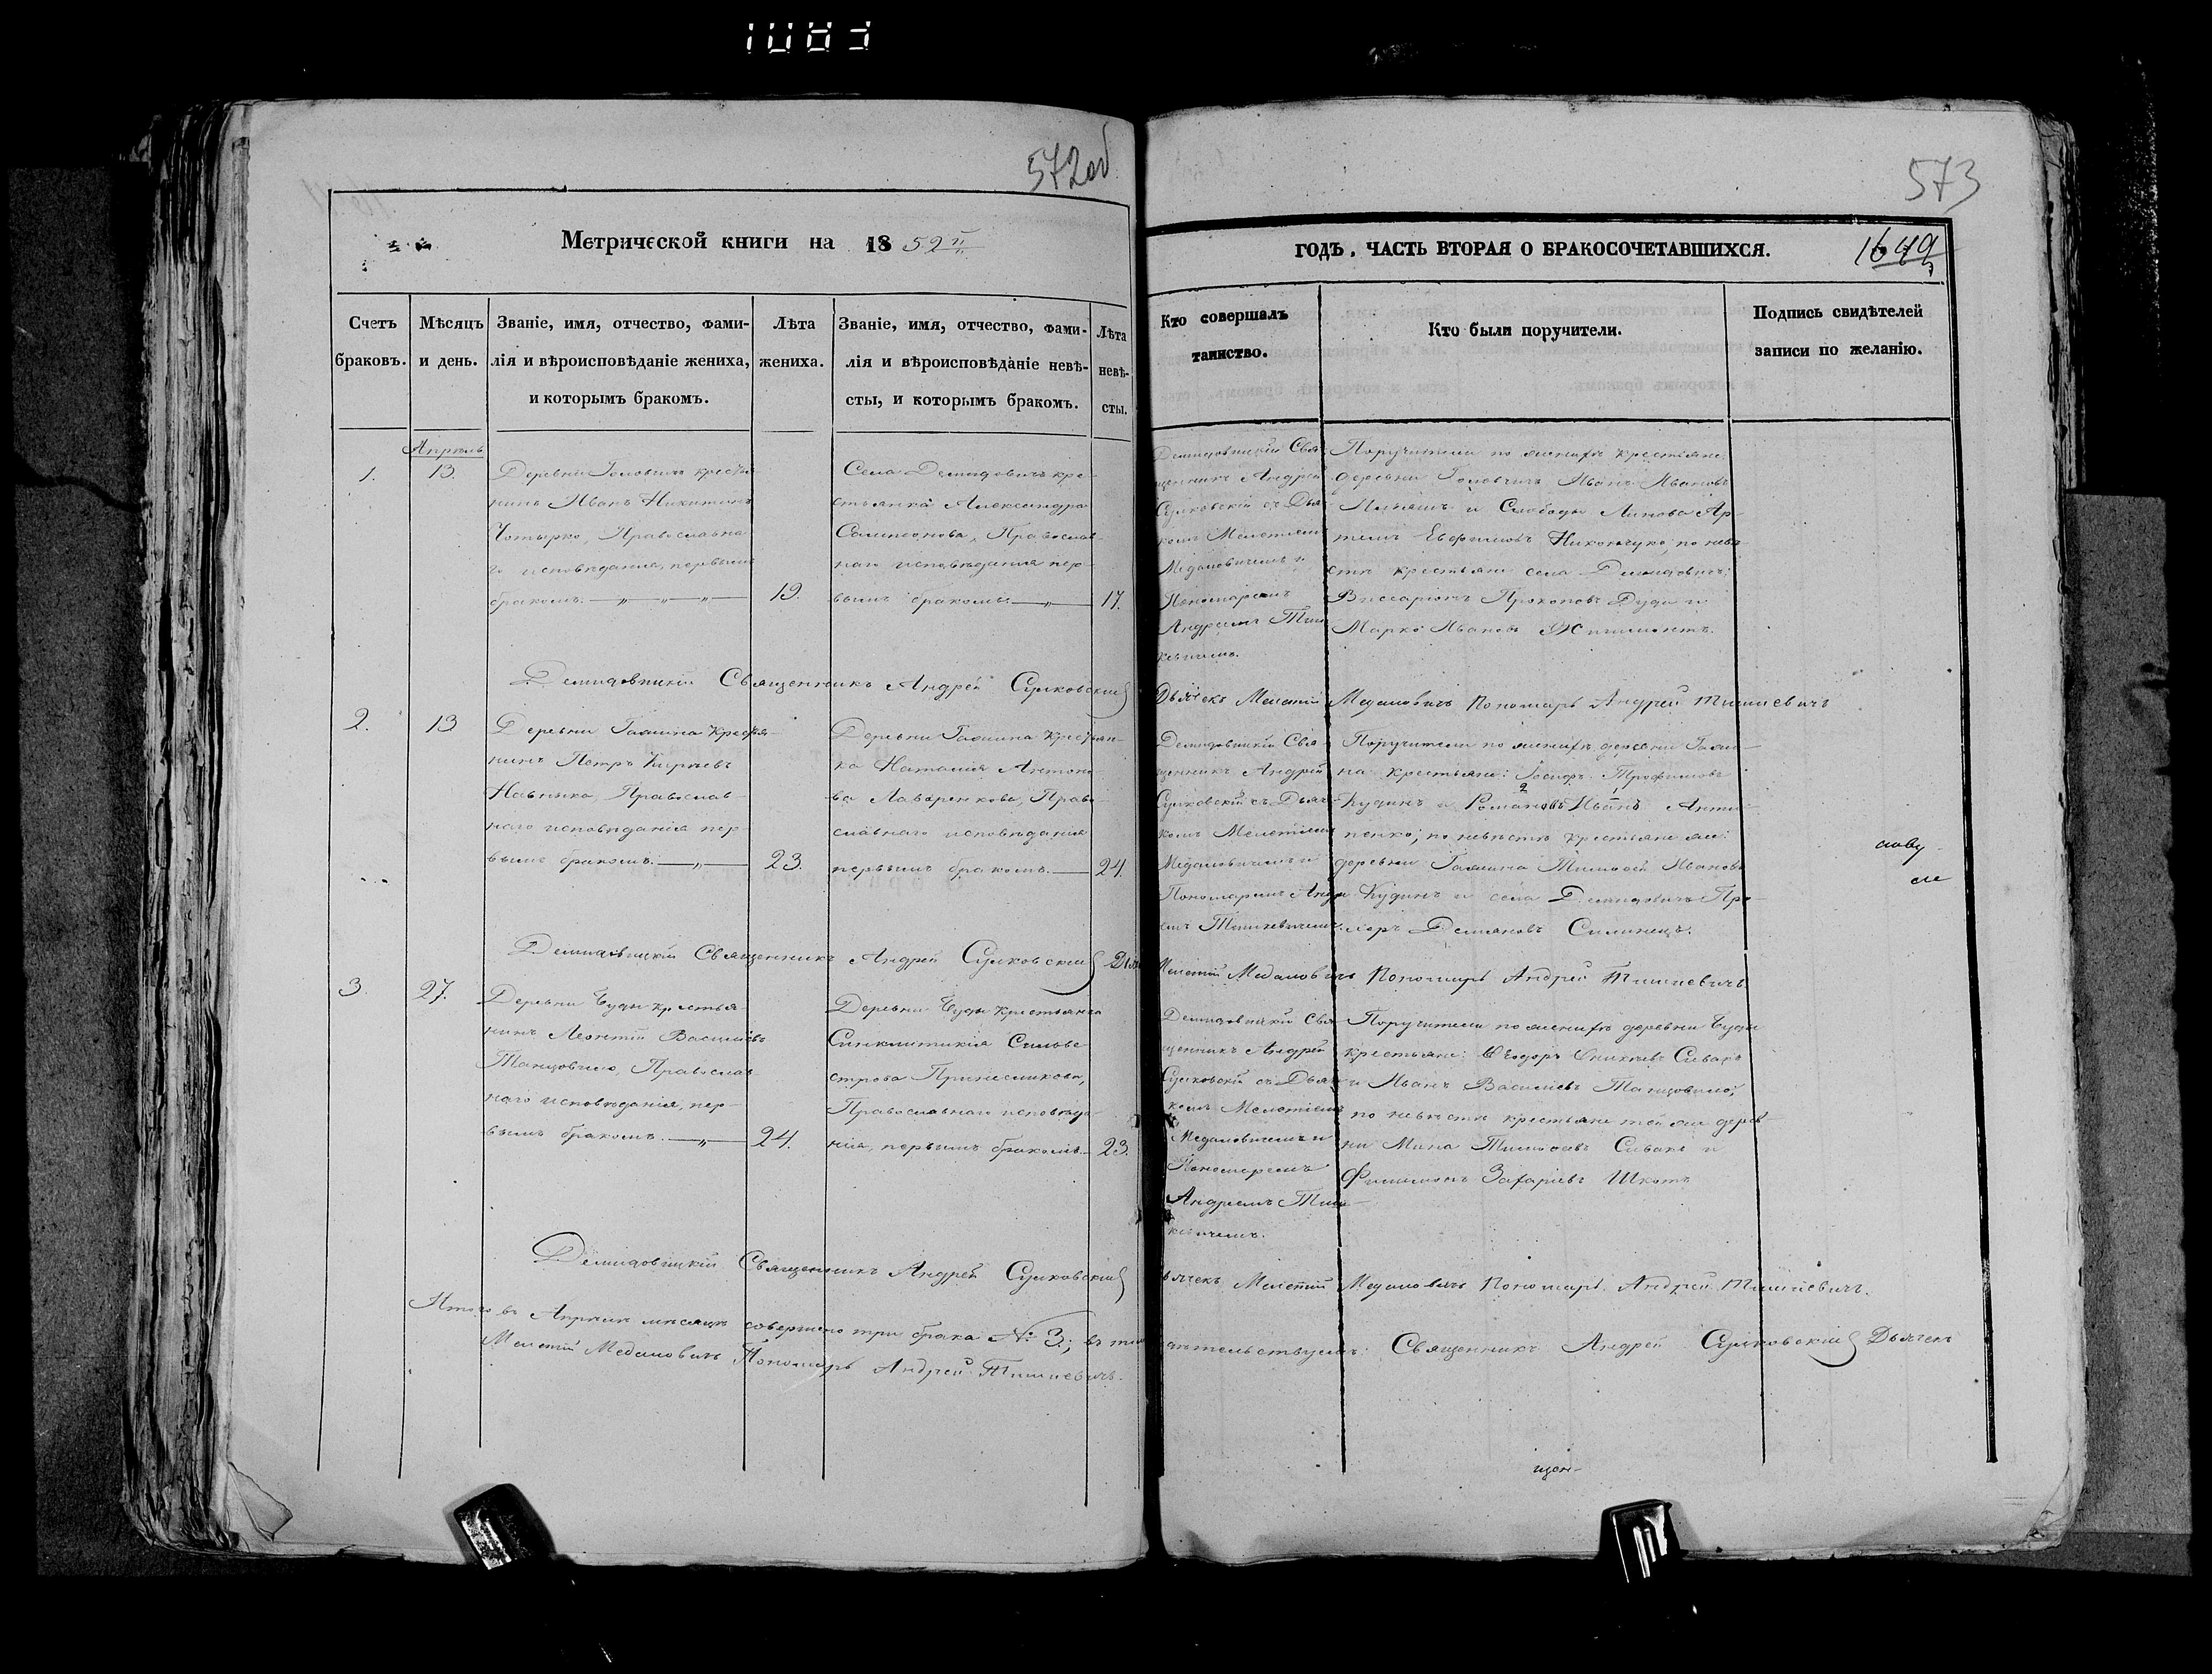 572об
573
Метрической книги на 1852й
ГОДЪ. ЧАСТЬ ВТОРАЯ О БРАКОСОЧЕТАВШИХСЯ.
1649
Счетъ браковъ.
Мѣсяцъ и день.
Званіе, имя, отчество, фами-
лія и вѣроисповѣданіе жениха,
и которымъ бракомъ.
Лѣта
жениха.
Званіе, имя, отчество, фами-
лія и вѣроисповѣданіе невѣ-
сты, и которымъ бракомъ.
Лѣта
невѣ-
сты.
Кто совершалъ
таинство.
Кто были поручители.
Подпись свидѣтелей
записи по желанію.
Апрѣль
1.
13.
Деревни Головчичъ крестья-
нинъ Иванъ Никитинъ
Чотырко, Православна-
го исповѣданія, первымъ
бракомъ.
19.
Села Демидовичъ кре-
стьянка Александра
Сампсонова, Православ-
наго исповѣданія пер-
вымъ бракомъ.
17.
Демидовицкій Свя-
щенникъ Андрей
Сулковскій съ Дья-
комъ Мелетіемъ
Медаловичемъ и
Пономаремъ
Андреемъ Тиш-
кевичемъ.
Поручители по женихѣ крестьяне
деревни Головчичъ Иванъ Ивановъ
и Слободы Липова Ар-
темъ Евфимовъ по невѣ-
стѣ крестьяне села Демидовичъ:
Виссаріонъ Прокоповъ Дуда и
Марко Ивановъ
Демидовицкій Священникъ Андрей Сулковскій
Дьячекъ Мелетій Медаловичъ Пономарь Андрей Тишкевичъ
2.
13
Деревни Гамина крестья-
нинъ Петръ Кирѣевъ
Православ-
наго исповѣданія пер-
вымъ бракомъ.
23.
Деревни Гамина крестьян-
ка Наталія Антоно-
ва Лавренкова, Право-
славнаго исповѣданія
первымъ бракомъ.
24.
Демидовицкій Свя-
щенникъ Андрей
Сулковскій съ Дья-
комъ Мелетіемъ
Медаловичемъ и
Пономаремъ Андре-
емъ Тишкевичемъ.
Поручители по женихѣ деревни Гами-
на крестьяне: Іосифъ Трофимовъ
Кудинъ и Романовъ Иванъ Анти-
пенко; по невѣстѣ крестьяне же:
деревни Гамина Тимофей Ивановъ
Кудинъ и села Демидовичъ Про-
хоръ Демяновъ Силинецъ.
Демидовицкій Священникъ Андрей Сулковскій Дьячекъ
Мелетій Медаловичъ Пономарь Андрей Тишкевичъ
3.
27.
Деревни Буды крестья-
нинъ Леонтій Василіевъ
Православ-
наго исповѣданія, пер-
вымъ бракомъ.
24.
Деревни Буды крестьянка
Синклитикія Сильве-
строва
Православнаго исповѣда-
нія, первымъ бракомъ.
23.
Демидовицкій Свя-
щенникъ Андрей
Сулковскій съ Дья-
комъ Мелетіемъ
Медаловичемъ и
Пономаремъ
Андреемъ Тиш-
кевичемъ.
Поручители по женихѣ деревни Буды
крестьяне: Ѳеодоръ Сивакъ
и Иванъ Василіевъ
по невѣстѣ крестьяне той же дерев-
ни Мина Тимофеевъ Сивакъ и
Филимонъ Захаріевъ Шкотъ
Демидовицкій Священникъ Андрей Сулковскій
Дьячекъ Мелетій Медаловичъ Пономарь Андрей Тишкевичъ.
Итого въ Апрѣлѣ мѣсяцѣ совершено три брака № 3; въ томъ свидѣтельствуемъ: Священникъ Андрей Сулковскій Дьячекъ
Мелетій Медаловичъ Пономарь Андрей Тишкевичъ.